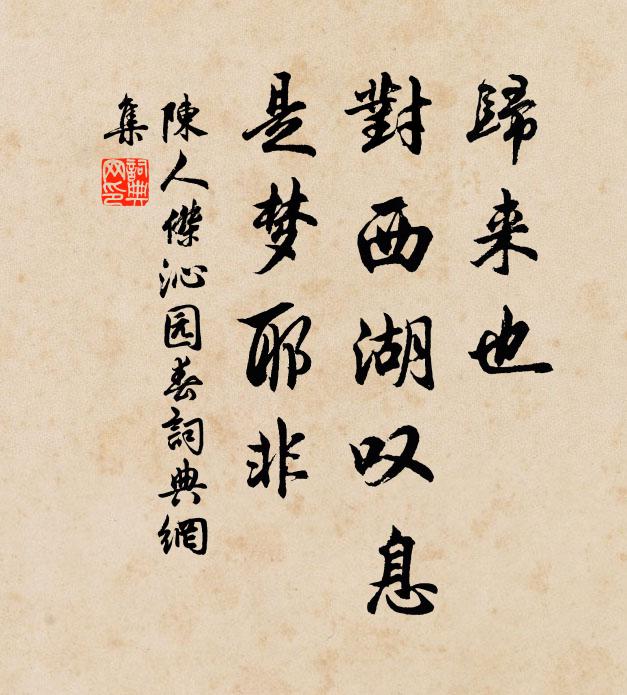 歸来也
對西湖叹息
是梦耶非
陳人傑沁园春詞典網
集
詞典
网印